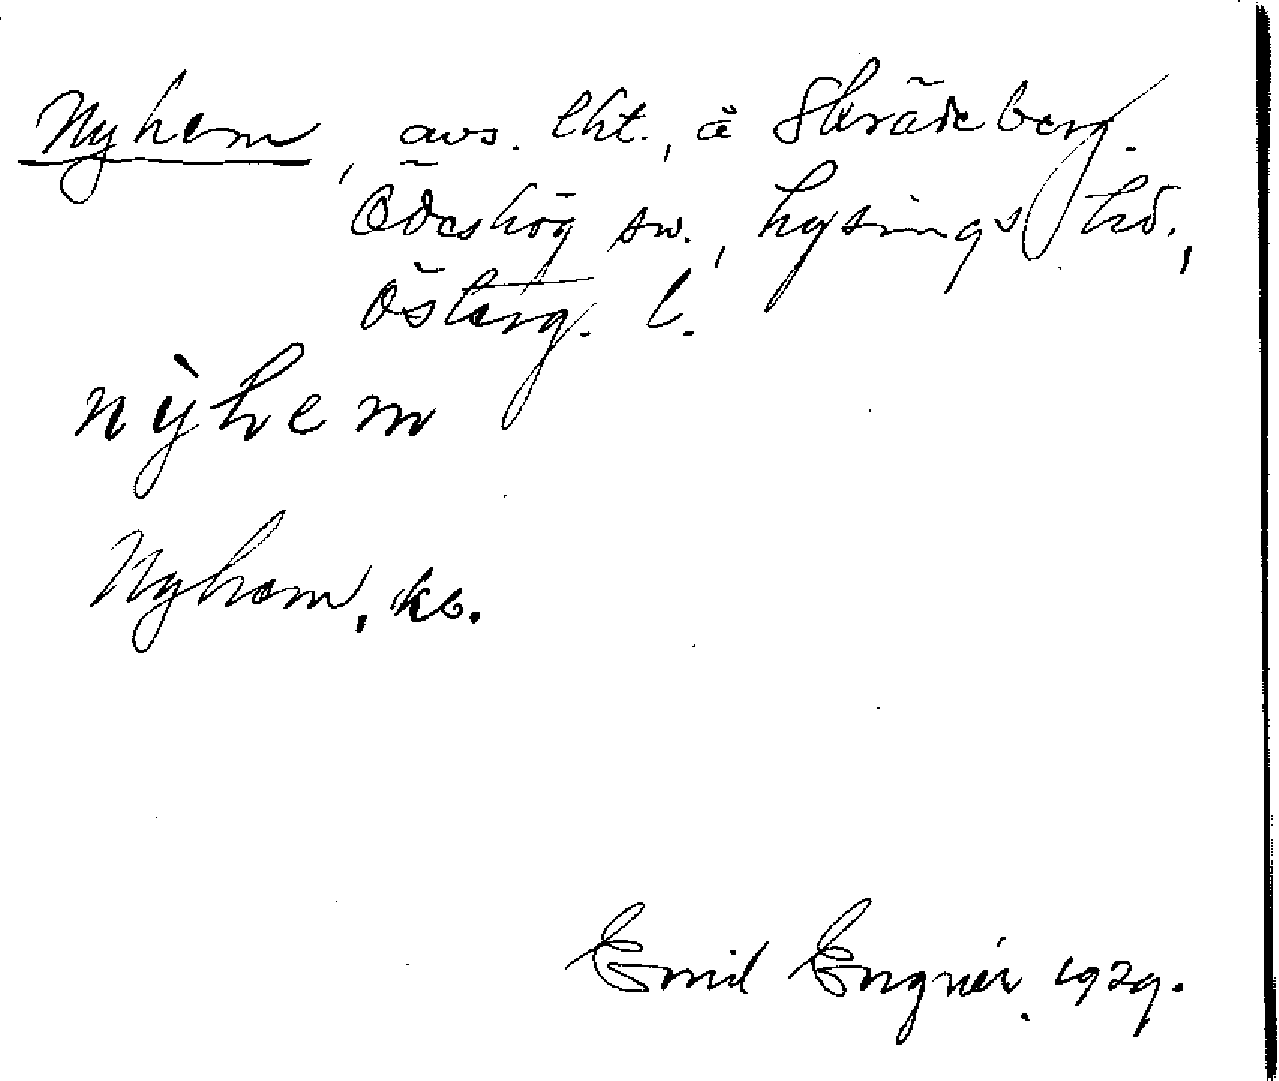 Nyhem, avs. lht., å Skrädeberg.
Ödeshög sn., Lysings hd.,
Österg. l.
nỳhem
Nyhem, kb.
Emil Engnér. 1929.